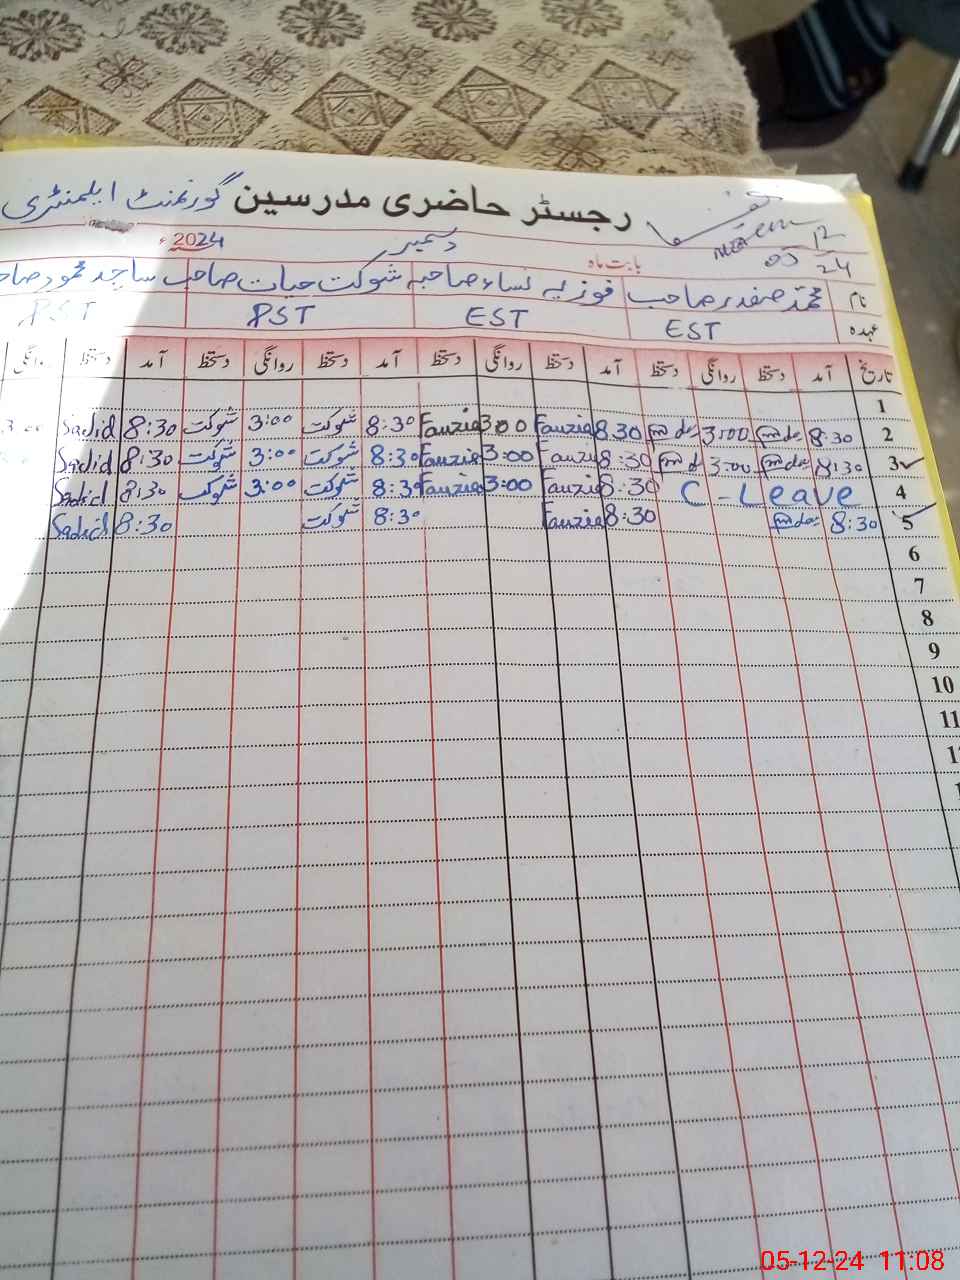 رجسٹر حاضری مدرسین گورنمنٹ ایلیمنٹری
12
05 24
بابت ماہ دسمبر 2024ء
نام محمد صفدر صاحب فوزیہ نساء صاحبہ شوکت حیات صاحب ساجد محمود صاحب
عہدہ EST EST PST PST
تاریخ آمد دستخط روانگی دستخط آمد دستخط روانگی دستخط آمد دستخط روانگی دستخط آمد دستخط روانگی
1
2 8:30 3:00 8.30 Fauzia 3:00 Fauzia 8:30 شوکت 3:00 شوکت 8:30 Sadid 3:00
3 8:30 3:00 8:30 Fauzia 3:00 Fauzia 8:30 شوکت 3:00 شوکت 8:30 Sadid
4 C-Leave 8:30 Fauzia 3:00 Fauzia 8:30 شوکت 3:00 شوکت 8:30 Sadid
5 8:30 8:30 Fauzia 8:30 شوکت 8:30 Sadid
6
7
8
9
10
11
05-12-24 11:08